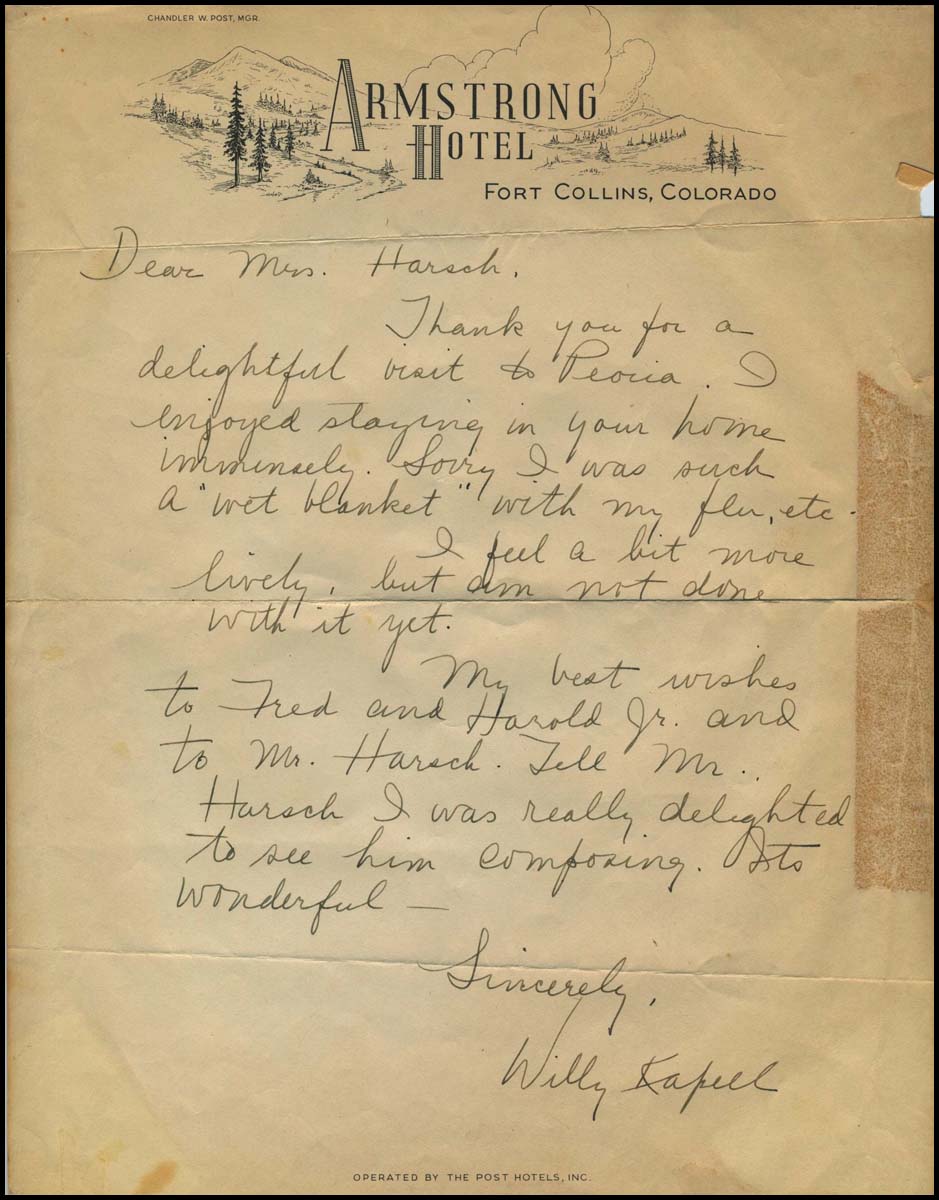 CHANDLER W. POST, MGR.
ARMSTRONG
HOTEL
FORT COLLINS, COLORADO
Dear Mrs. Harsch,
Thank you for a
delightful visit to Peoria. I
enjoyed staying in your home
imminsely. Sorry I was such
a "wet blanket" with my flu, etc.
I feel a bit more
lively, but am not done
with it yet.
My best wishes
to Fred and Harold Jr. and
to Mr. Harsch. Tell Mr.
Harsch I was really delighted
to see him composing. Its
wonderful —
Sincerely,
Willy Kapell
OPERATED BY THE POST HOTELS, INC.